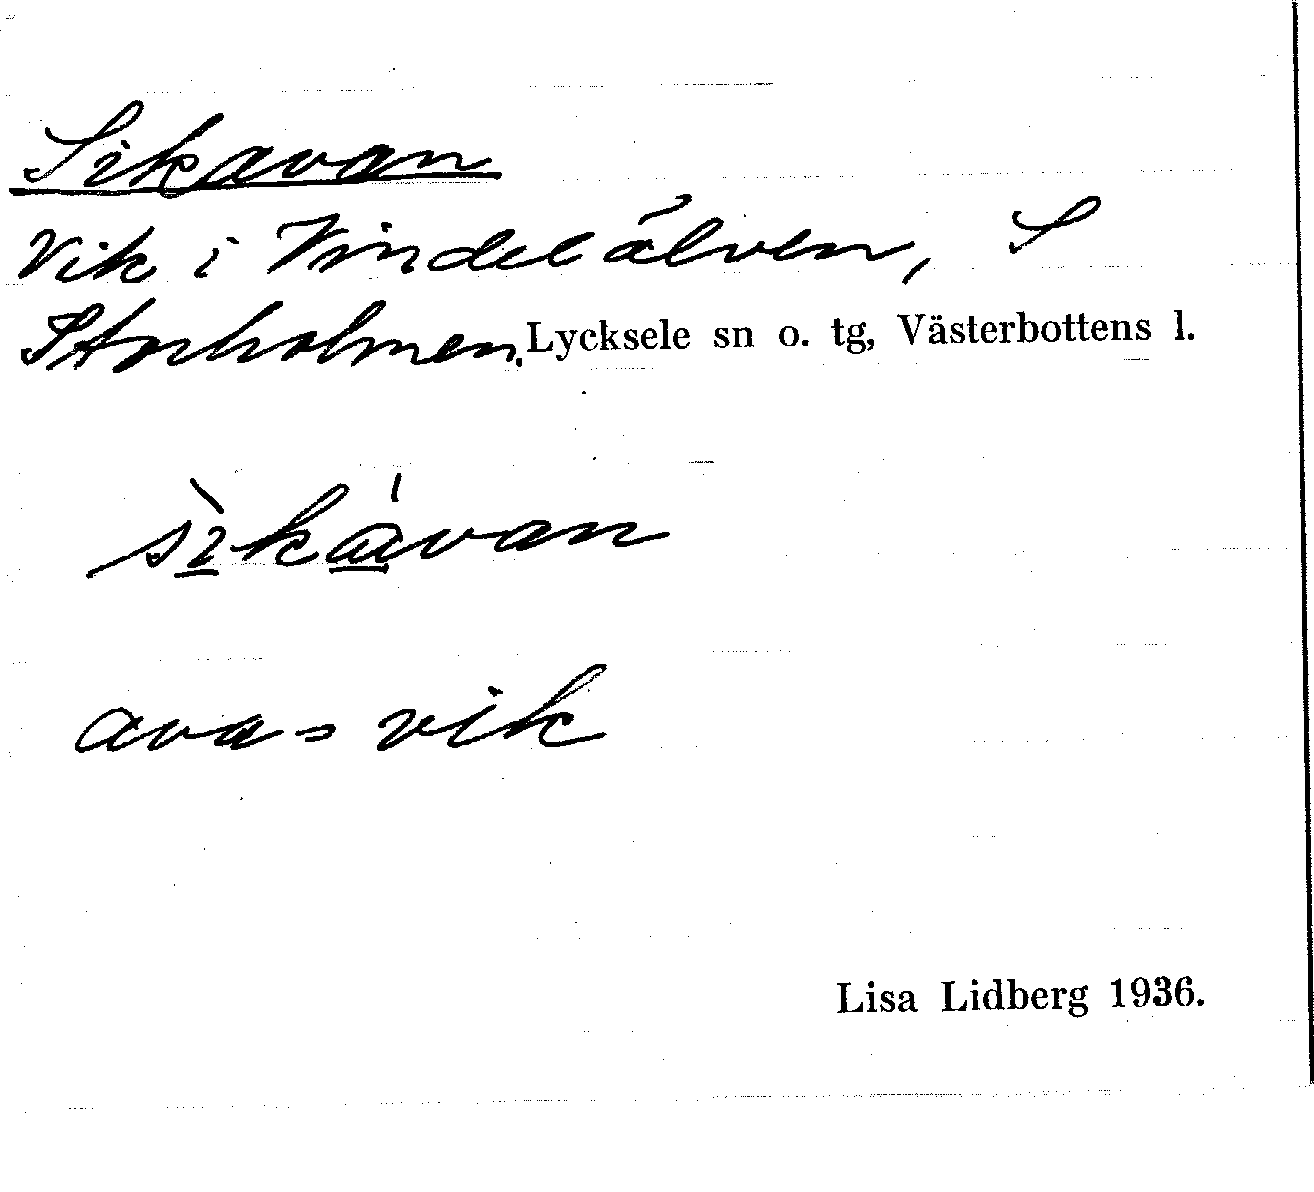 Sikavan
Vik i Vindelälven, S
Storholmen. Lycksele sn o. tg, Västerbottens l.
sì̱ká̱van
ava = vik
Lisa Lidberg 1936.